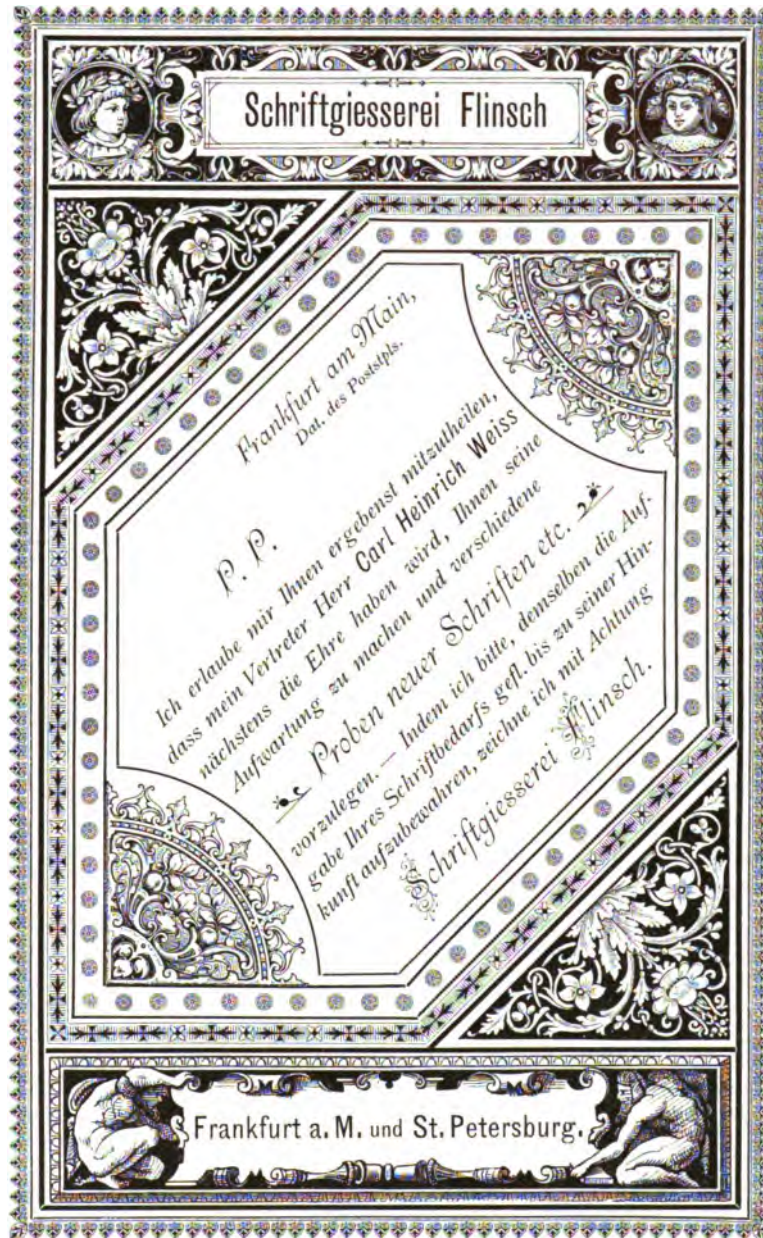 Schriftgiesserei Flinsch
Frankfurt am Main,
Dat. des Poststpls.
P. P.
Ich erlaube mir Ihnen ergebenst mitzutheilen,
dass mein Vertreter Herr Carl Heinrich Weiss
nächstens die Ehre haben wird, Ihnen seine
Aufwartung zu machen und verschiedene
Proben neuer Schriften etc.
vorzulegen. — Indem ich bitte, demselben die Auf-
gabe Ihres Schriftbedarfs gefl. bis zu seiner Hin-
kunft aufzubewahren, zeichne ich mit Achtung
Schriftgiesserei Flinsch.
Frankfurt a. M. und St. Petersburg.